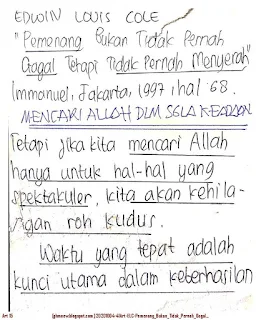 EDWIN LOUIS COLE
"Pemenang Bukan Tidak Pernah
Gagal Tetapi Tidak Pernah Menyerah"
Immanuel, Jakarta, 1997, hal 68.
MENCARI ALLAH DLM SGLA KEADAAN
Tetapi jika kita mencari Allah
hanya untuk hal-hal yang
spektakuler, kita akan kehila-
ngan roh kudus.
Waktu yang tepat adalah
kunci utama dalam keterhasilan